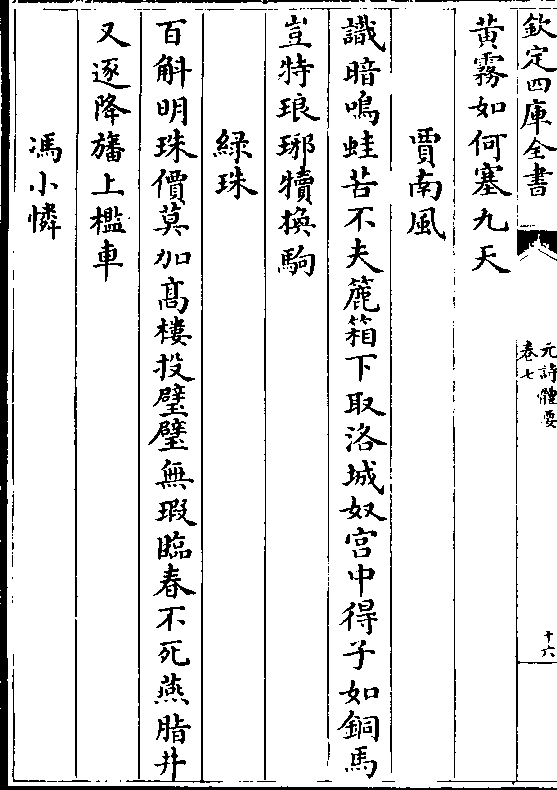 欽定四庫全書
元詩體要
卷七
十六
黃霧如何塞九天
賈南風
識暗鳴蛙苦不夫簏箱下取洛城奴宫中得子如銅馬
豈特琅琊犢換駒
綠珠
百斛明珠價莫加髙樓投璧璧無瑕臨春不死燕脂井
又逐降旛上檻車
馮小憐